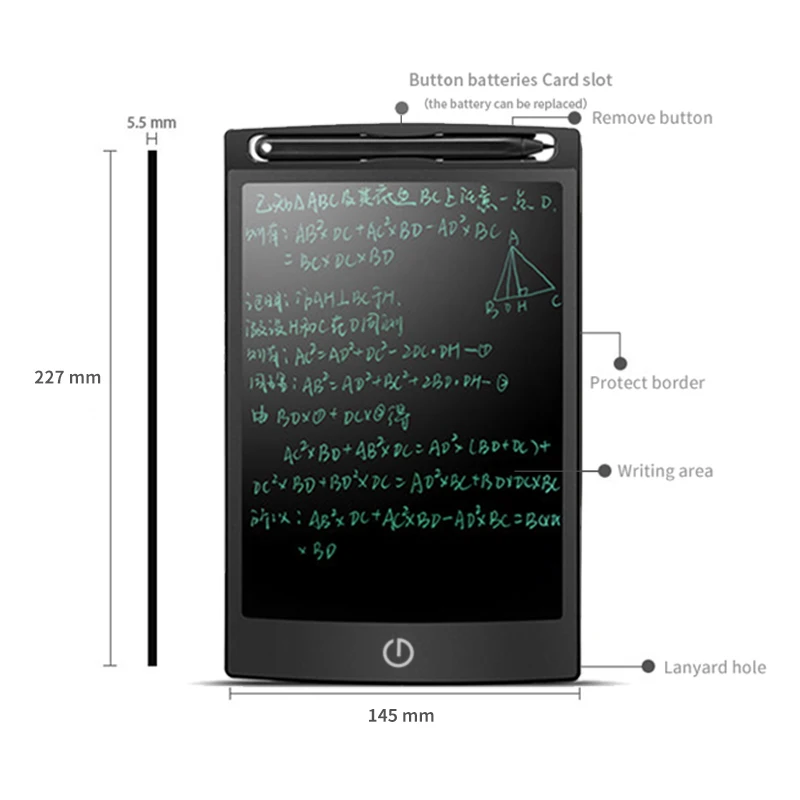 Button batteries Card slot
(the battery can be replaced)
Remove button
5.5 mm
已知△ABC及其底边BC上任意一点D.
则有: AB²×DC+AC²×BD-AD²×BC
=BC×DC×BD
A
B D H C
证明: 作AH⊥BC于H,
假设H和C在D同侧
则有: AC²=AD²+DC²-2DC·DH—①
同理: AB²=AD²+BC²+2BD·DH—②
由 BD×①+DC×②得
AC²×BD+AB²×DC=AD²×(BD+DC)+
DC²×BD+BD²×DC=AD²×BC+BD×DC×BC
所以: AB²×DC+AC²×BD-AD²×BC=BC×DC
×BD
227 mm
Protect border
Writing area
Lanyard hole
145 mm